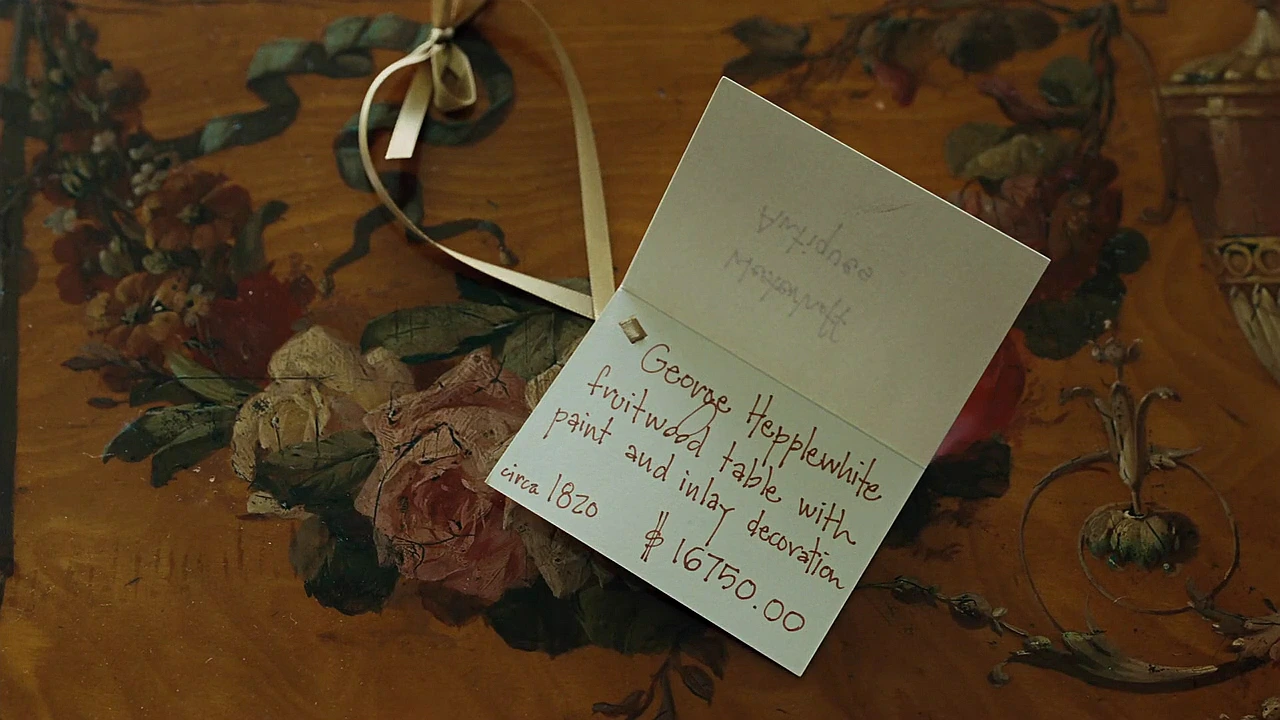 George Hepplewhite
fruitwood table with
paint and inlay decoration
circa 1820
$16750.00